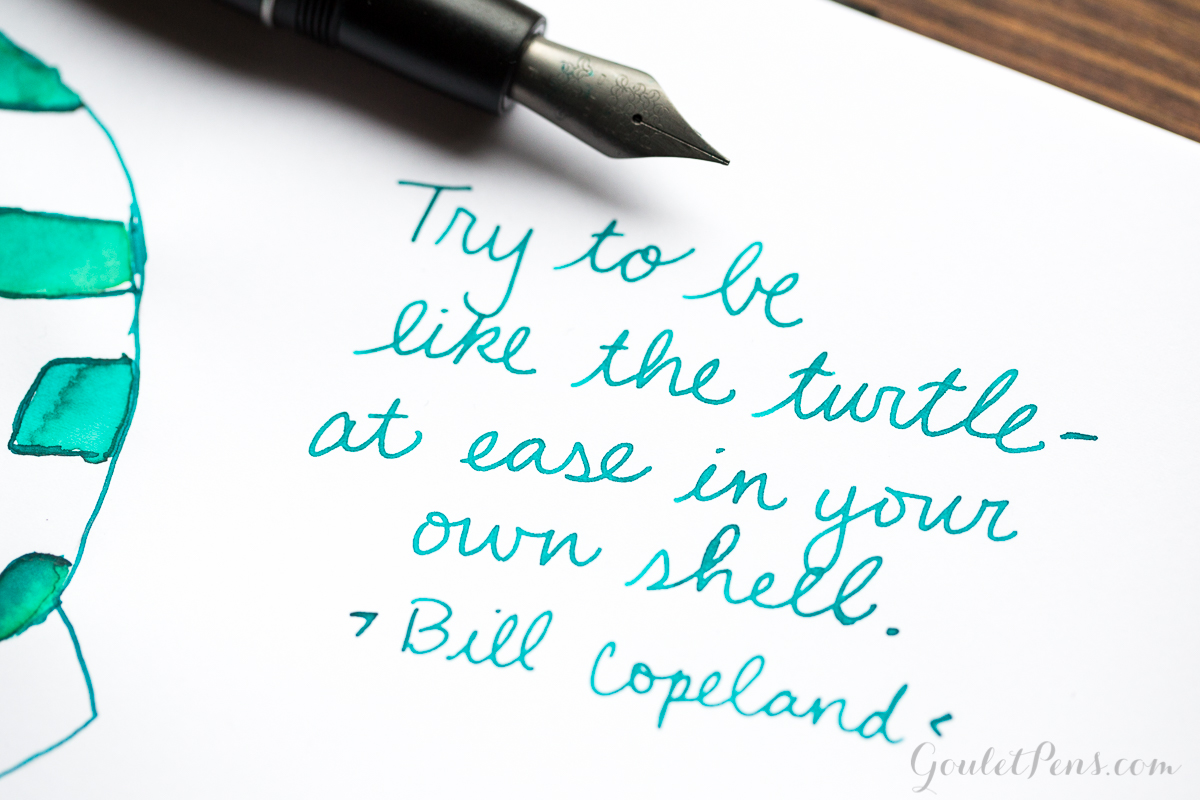 Try to be
like the turtle-
at ease in your
own shell.
> Bill Copeland <
GouletPens.com